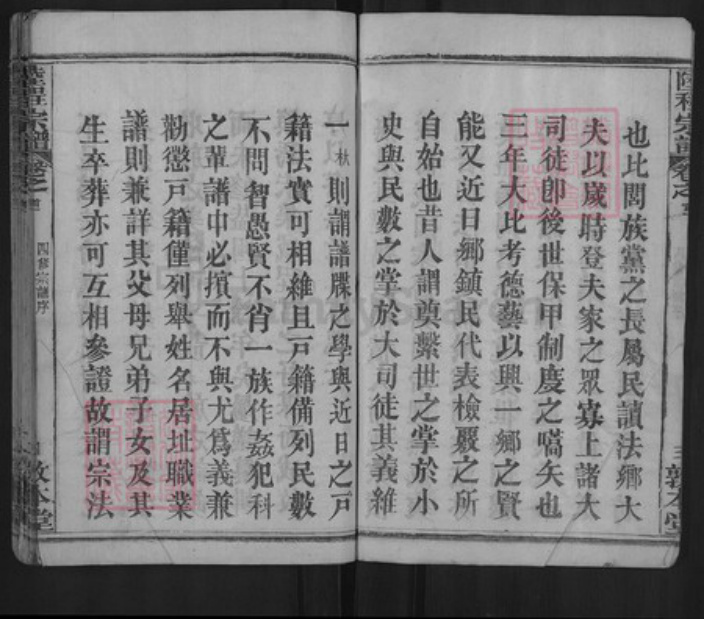 陸程宗譜 卷之首
敦本堂
也比閭族黨之長屬民讀法鄉大
夫以歲時登夫家之眾寡上諸大
司徒卽後世保甲制度之嚆矢也
三年大比考德藝以興一鄉之賢
能又近日鄉鎮民代表檢覈之所
自始也昔人謂奠繫世之掌於小
史與民數之掌於大司徒其義維
一秋則謂譜牒之學與近日之戸
籍法實可相維且戸籍備列民數
不問智愚賢不肖一族作姦犯科
之輩譜中必擯而不與尤爲義兼
勸懲戸籍僅列舉姓名居址職業
譜則兼詳其父母兄弟子女及其
生卒葬亦可互相參證故謂宗法
宗譜 卷之首
四修宗譜序
敦本堂